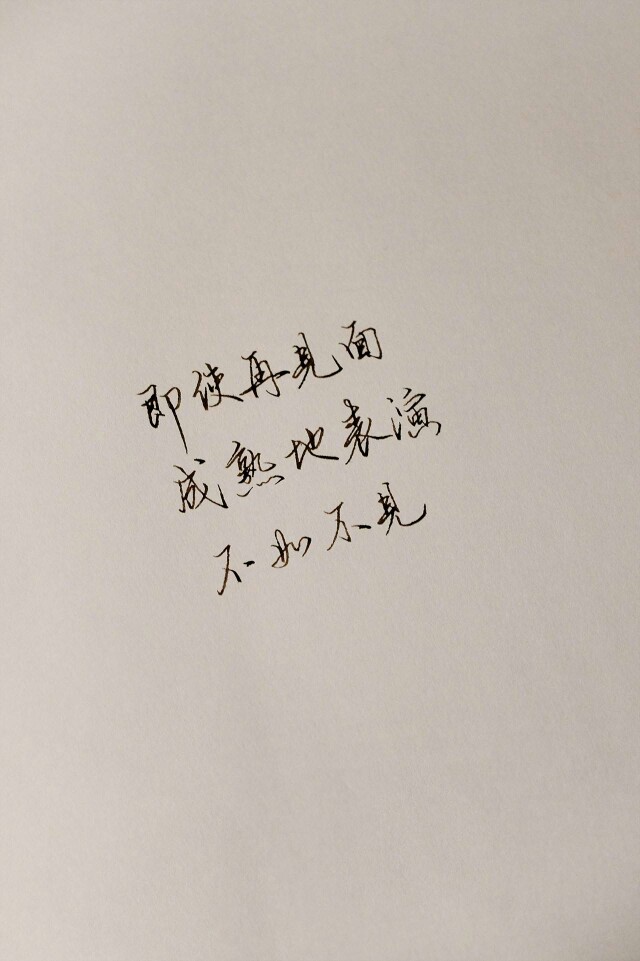 即使再見面
成熟地表演
不如不見